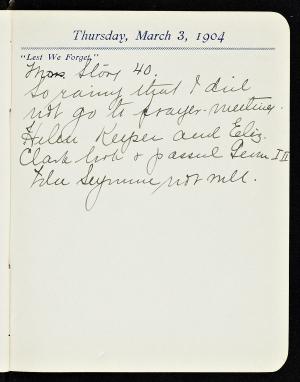 Thursday, March 3, 1904
"Lest We Forget,"
Mrs. Story 40.
So rainy that I did
not go to prayer-meeting.
Helen Keeper and Eliz.
Clark took & passed Geom I II
Seymour not well.